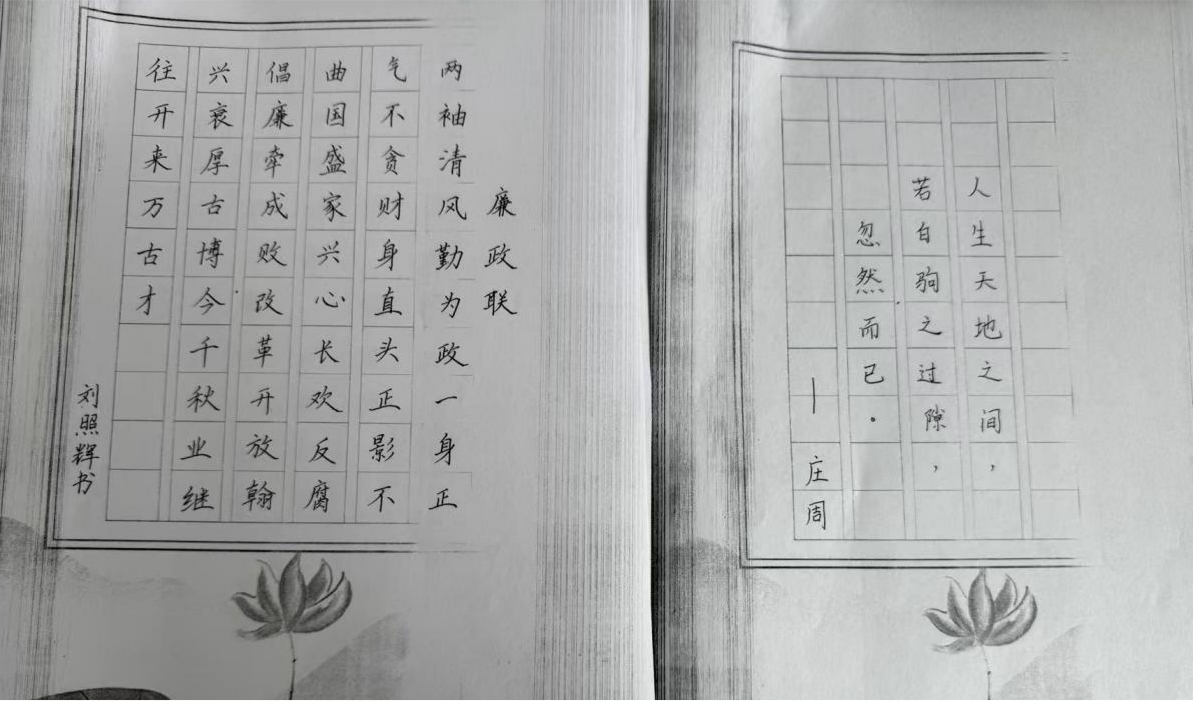 廉政联
两袖清风勤为政一身正
气不贪财身直头正影不
曲国盛家兴心长欢反腐
倡廉牵成败改革开放翰
兴衰厚古博今千秋业继
往开来万古才
刘照辉书
人生天地之间，
若白驹之过隙，
忽然而已.
—庄周